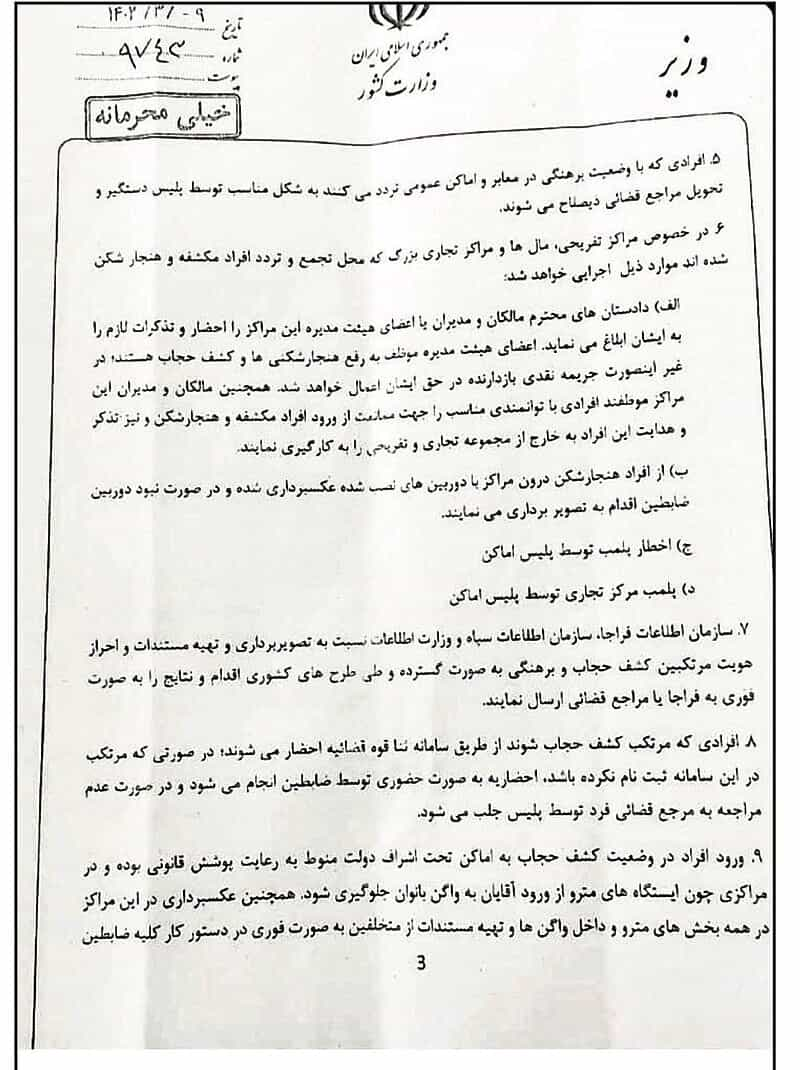 وزیر
جمهوری اسلامی ایران
وزارت کشور
تاریخ ۱۴۰۲/۳/۰۹
شماره ۹۷۴۳
پیوست
خیلی محرمانه
۵. افرادی که با وضعیت برهنگی در معابر و اماکن عمومی تردد می کنند به شکل مناسب توسط پلیس دستگیر و
تحویل مراجع قضائی ذیصلاح می شوند.
۶ در خصوص مراکز تفریحی، مال ها و مراکز تجاری بزرگ که محل تجمع و تردد افراد مکشفه و هنجار شکن
شده اند موارد ذیل اجرایی خواهد شد:
الف) دادستان های محترم مالکان و مدیران یا اعضای هیئت مدیره این مراکز را احضار و تذکرات لازم را
به ایشان ابلاغ می نماید. اعضای هیئت مدیره موظف به رفع هنجارشکنی ها و کشف حجاب هستند؛ در
غیر اینصورت جریمه نقدی بازدارنده در حق ایشان اعمال خواهد شد. همچنین مالکان و مدیران این
مراکز موظفند افرادی با توانمندی مناسب را جهت ممانعت از ورود افراد مکشفه و هنجارشکن و نیز تذکر
و هدایت این افراد به خارج از مجموعه تجاری و تفریحی را به کارگیری نمایند.
ب) از افراد هنجارشکن درون مراکز با دوربین های نصب شده عکسبرداری شده و در صورت نبود دوربین
ضابطین اقدام به تصویر برداری می نمایند.
ج) اخطار پلمب توسط پلیس اماکن
د) پلمب مرکز تجاری توسط پلیس اماکن
۷. سازمان اطلاعات فراجا، سازمان اطلاعات سپاه و وزارت اطلاعات نسبت به تصویربرداری و تهیه مستندات و احراز
هویت مرتکبین کشف حجاب و برهنگی به صورت گسترده و طی طرح های کشوری اقدام و نتایج را به صورت
فوری به فراجا یا مراجع قضائی ارسال نمایند.
۸ افرادی که مرتکب کشف حجاب شوند از طریق سامانه ثنا قوه قضائیه احضار می شوند؛ در صورتی که مرتکب
در این سامانه ثبت نام نکرده باشد، احضاریه به صورت حضوری توسط ضابطین انجام می شود و در صورت عدم
مراجعه به مرجع قضائی فرد توسط پلیس جلب می شود.
۹. ورود افراد در وضعیت کشف حجاب به اماکن تحت اشراف دولت منوط به رعایت پوشش قانونی بوده و در
مراکزی چون ایستگاه های مترو از ورود آقایان به واگن بانوان جلوگیری شود. همچنین عکسبرداری در این مراکز
در همه بخش های مترو و داخل واگن ها و تهیه مستندات از متخلفین به صورت فوری در دستور کار کلیه ضابطین
3